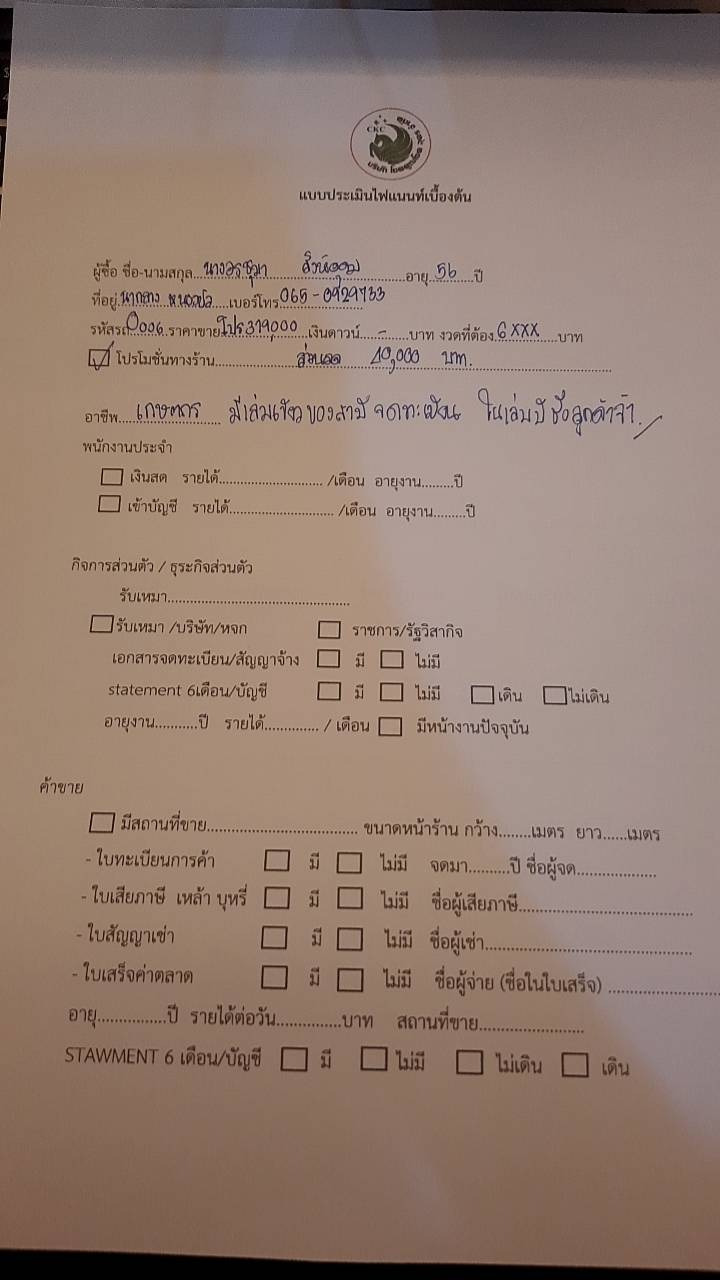 CKC
แบบประเมินไฟแนนท์เบื้องต้น
ผู้ซื้อ ชื่อ-นามสกุล....นางอรชุมา สิงห์.......อายุ.56.ปี
ที่อยู่.นากลาง หนองบัว.....เบอร์โทร.065-0929733
รหัสรถ.0006.ราคาขาย.โปร319,000...เงินดาวน์....-.....บาท งวดที่ต้อง.6xxx....บาท
โปรโมชั่นทางร้าน..........ส่วนลด 10,000 บาท..........
อาชีพ....เกษตกร มีเล่มเขียวของสามี จดทะเบียน ในเล่มมีชื่อลูกค้าจ้า
พนักงานประจำ
เงินสด รายได้............................ /เดือน อายุงาน.........ปี
เข้าบัญชี รายได้............................ /เดือน อายุงาน.........ปี
กิจการส่วนตัว / ธุระกิจส่วนตัว
รับเหมา..................................................
รับเหมา /บริษัท/หจก ราชการ/รัฐวิสากิจ
เอกสารจดทะเบียน/สัญญาจ้าง มี ไม่มี
statement 6เดือน/บัญชี มี ไม่มี เดิน ไม่เดิน
อายุงาน...........ปี รายได้.............. / เดือน มีหน้างานปัจจุบัน
ค้าขาย
มีสถานที่ขาย...................................... ขนาดหน้าร้าน กว้าง........เมตร ยาว......เมตร
- ใบทะเบียนการค้า มี ไม่มี จดมา..........ปี ชื่อผู้จด...................
- ใบเสียภาษี เหล้า บุหรี่ มี ไม่มี ชื่อผู้เสียภาษี.........................................
- ใบสัญญาเช่า มี ไม่มี ชื่อผู้เช่า.................................................
- ใบเสร็จค่าตลาด มี ไม่มี ชื่อผู้จ่าย (ชื่อในใบเสร็จ) ..........................
อายุ................ปี รายได้ต่อวัน...............บาท สถานที่ขาย.........................
STAWMENT 6 เดือน/บัญชี มี ไม่มี ไม่เดิน เดิน